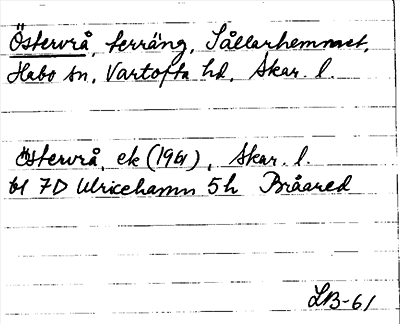 Östervrå, terräng, Sållarhemmet,
Habo sn, Vartofta hd, Skar. l.
Östervrå, ek (1961), Skar. l.
bl 7D Ulricehamn 5h Bråared
LB-61